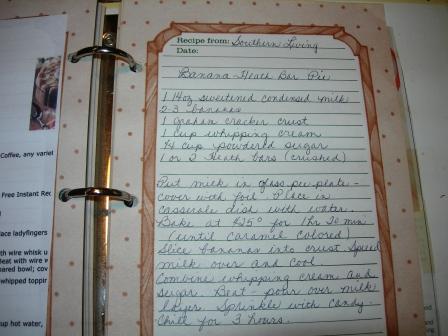 Recipe from: Southern Living
Date:
Banana-Heath Bar Pie
1 14oz sweetened condensed milk
2-3 bananas
1 Graham cracker crust
1 cup whipping cream
1/4 cup powdered sugar
1 or 2 Heath bars (crushed)
Put milk in glass pie plate -
cover with foil. Place in
casserole dish with water.
Bake at 425° for 1 hr 20 min
(until caramel colored)
Slice bananas into crust. Spread
milk over and cool
Combine whipping cream and
sugar. Beat - pour over milk
layer. Sprinkle with candy.
Chill for 3 hours.
Coffee, any variet
Free Instant Rec
place ladyfingers
with wire whisk u
Beat with wire w
whipped toppin
cup hot water,